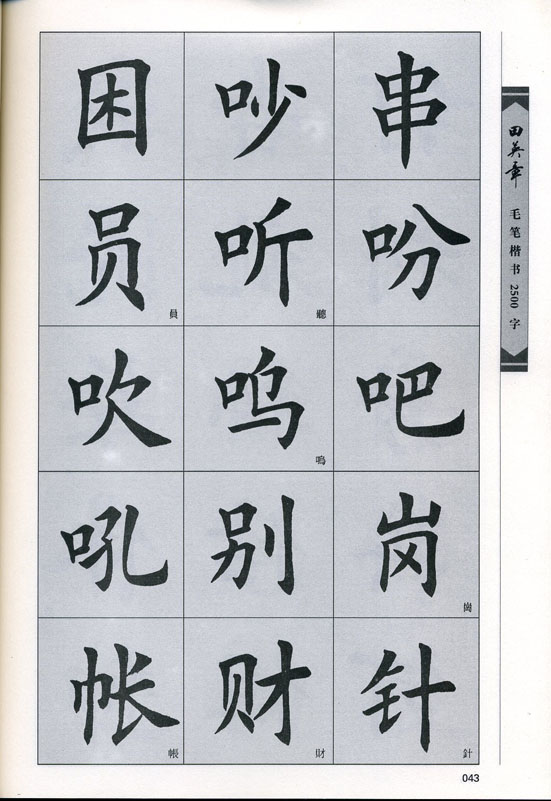 困 吵 串
员 員 听 聽 吩
吹 呜 嗚 吧
吼 别 岗 崗
帐 帳 财 財 针 針
田英章 毛笔楷书 2500 字
043